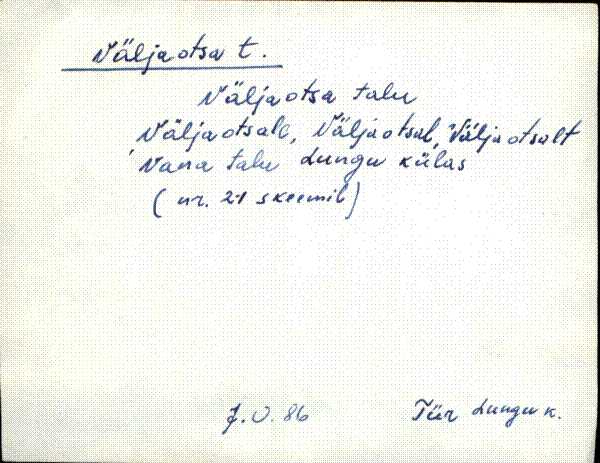 Väljaotsa t.
Väljaotsa talu
Väljaotsale, Väljaotsal, Väljaotsalt
Vana talu Lungu külas
(nr. 21 skeemil)
J.O. 86 Tür Lungu k.